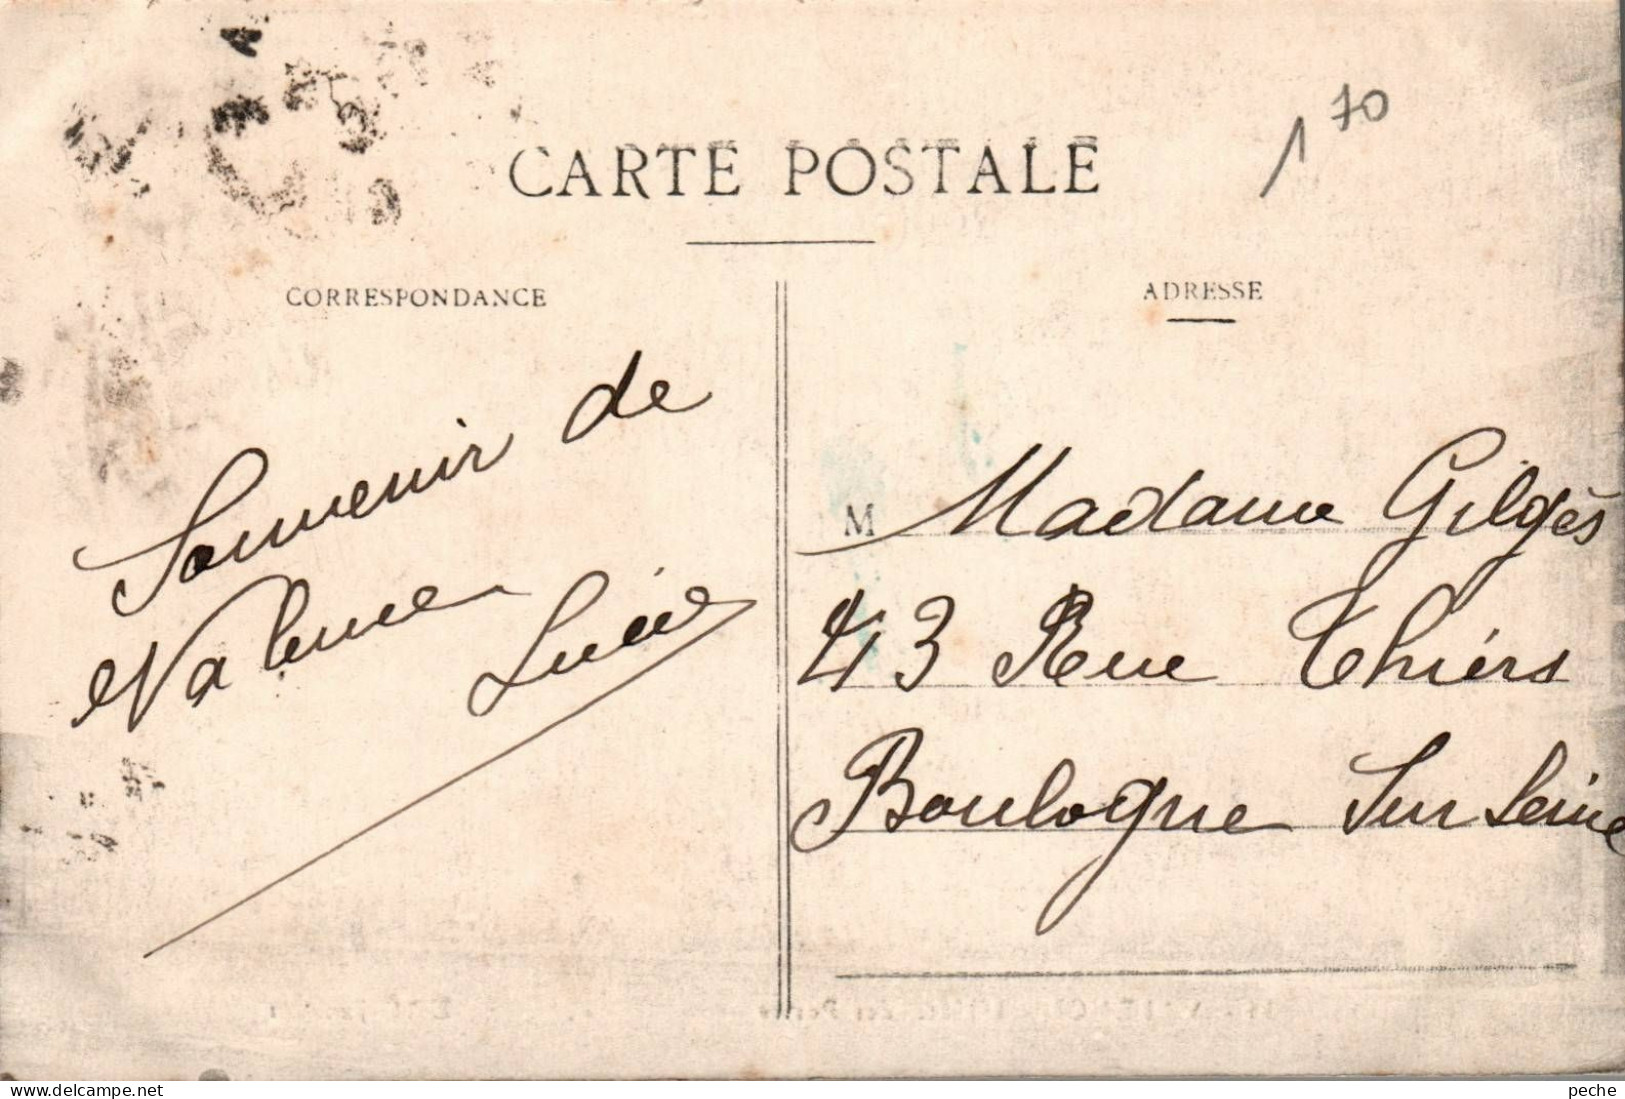 1 70
CARTE POSTALE
CORRESPONDANCE
ADRESSE
Souvenir de
Valence
Lucie
M Madame Gilgès
43 Rue Thiers
Boulogne Sur Seine
www.delcampe.net
peche